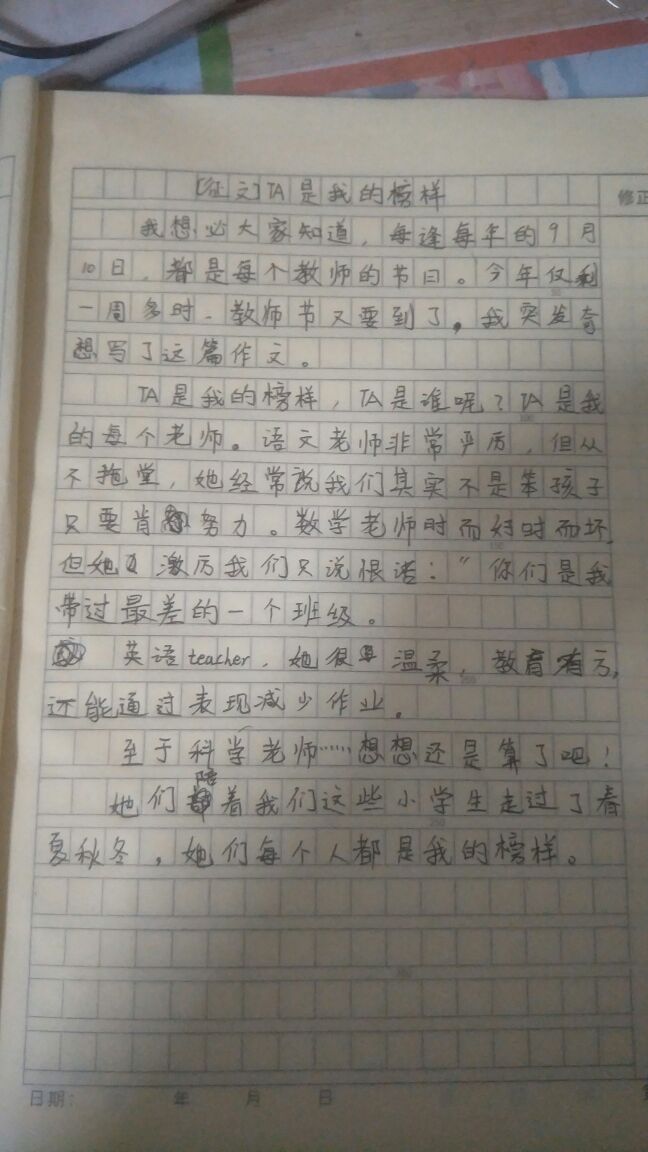 [征文]TA是我的榜样
修正
我想必大家知道，每逢每年的9月
10日，都是每个教师的节日。今年仅剩
一周多时，教师节又要到了，我突发奇
想写了这篇作文。
TA是我的榜样，TA是谁呢？TA是我
的每个老师。语文老师非常严厉，但从
不拖堂，她经常说我们其实不是笨孩子
只要肯努力。数学老师时而好时而坏，
但她激厉我们只说恨话：“你们是我
带过最差的一个班级。
英语teacher，她很温柔，教育有方，
还能通过表现减少作业。
至于科学老师……想想还是算了吧！
她们陪着我们这些小学生走过了春
夏秋冬，她们每个人都是我的榜样。
日期： 年 月 日